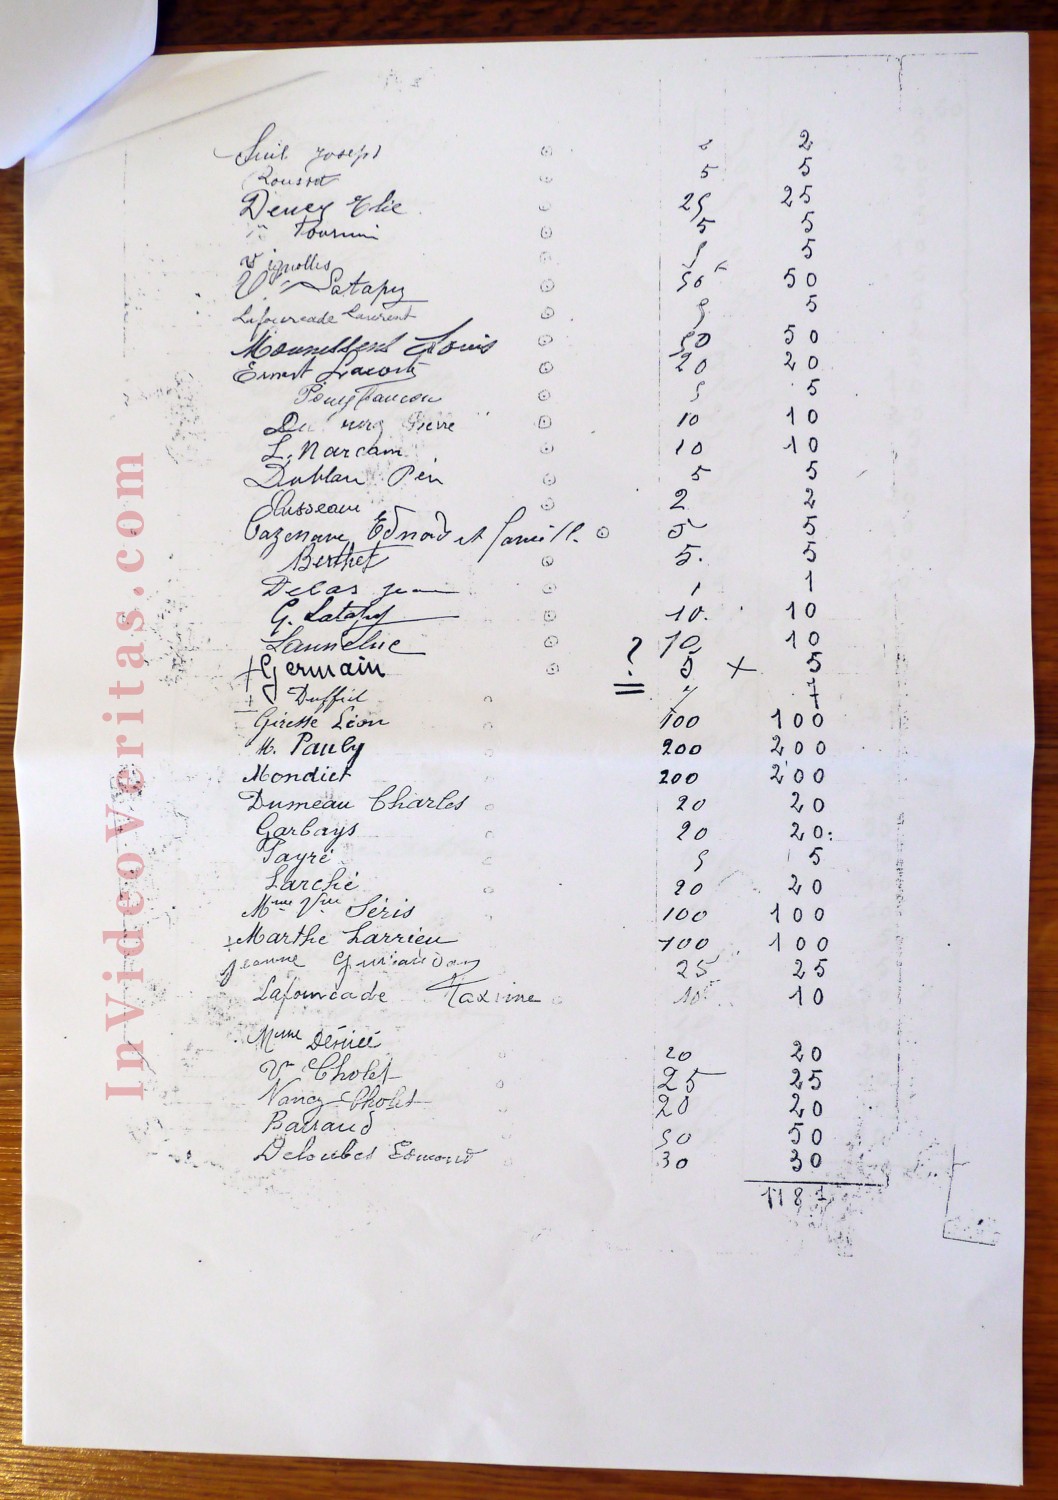 Suil Joseph 2 2
Rousset 5 5
Elie 25 25
Tournié 5 5
Vignolles 5 5
Latapy 50 50
Lafourcade Laurent 5 5
Louis 50 50
Ernest Lacoste 20 20
5 5
Pierre 10 10
L. Narcam 10 10
Dublan 5 5
2 2
Cazenave Edmond et famille 5 5
Berthet 5. 5
Delas Jean 1 1
G. Latapy 10. 10
Lannelue 10 10
+ Germain ? 5 x 5
+ Duffil
Giresse Léon 100 100
M. Pauly 200 200
Mondiet 200 200
Dumeau Charles 20 20
Garbays 20 20
Payré 5 5
Larché 20 20
Mme Vve Séris 100 100
+ Marthe Larrieu 100 100
Jeanne 25 25
Lafourcade Maxime 10 10
Mme 20 20
Ve Cholet 25 25
Nancy Cholet 20 20
Barraud 50 50
Deloubes Edmond 30 30
1187
InVideoVeritas.com